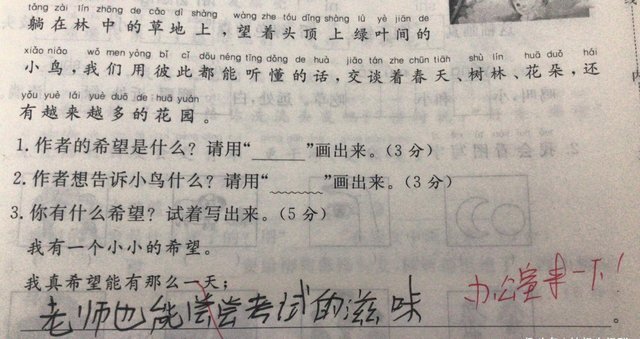 tǎng zài lín zhōng de cǎo dì shàng wàng zhe tóu dǐng shàng lǜ yè jiān de
躺在林中的草地上，望着头顶上绿叶间的
xiǎo niǎo wǒ men yòng bǐ cǐ dōu néng tīng dǒng de huà jiāo tán zhe chūn tiān shù lín huā duǒ hái
小鸟，我们用彼此都能听懂的话，交谈着春天、树林、花朵，还
yǒu yuè lái yuè duō de huā yuán
有越来越多的花园。
1.作者的希望是什么？请用“____”画出来。(3分)
2.作者想告诉小鸟什么？请用“﹏﹏”画出来。(3分)
3.你有什么希望？试着写出来。(5分)
我有一个小小的希望。
我真希望能有那么一天；
老师也能尝尝考试的滋味。
办公室来一下！